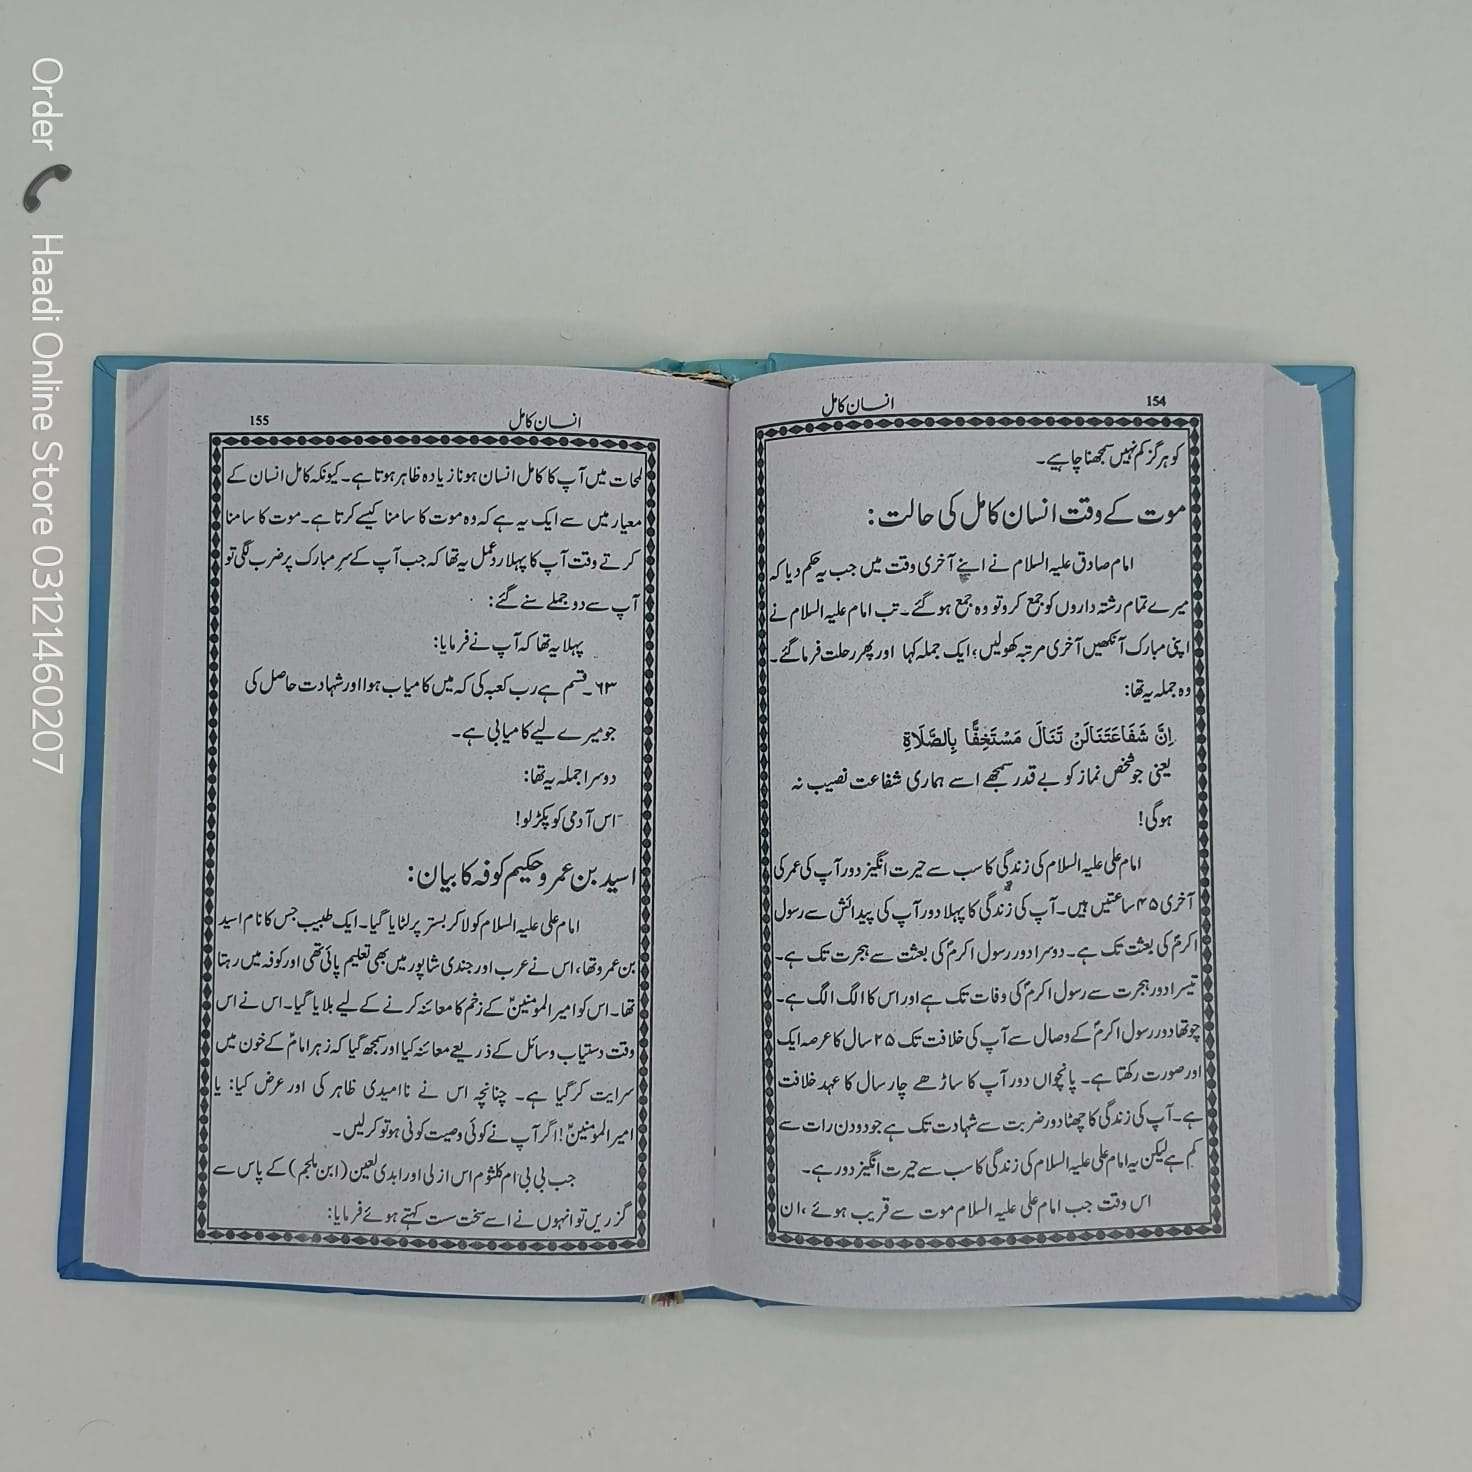 Order 📞 Haadi Online Store 03121460207
154
انسان کامل
کو ہرگز کم نہیں سمجھنا چاہیے۔
موت کے وقت انسان کامل کی حالت:
امام صادق علیہ السلام نے اپنے آخری وقت میں جب یہ حکم دیا کہ
میرے تمام رشتہ داروں کو جمع کرو تو وہ جمع ہو گئے۔ تب امام علیہ السلام نے
اپنی مبارک آنکھیں آخری مرتبہ کھولیں، ایک جملہ کہا اور پھر رحلت فرما گئے۔
وہ جملہ یہ تھا:
اِنَّ شَفَاعَتَنَالَنْ تَنَالَ مَسْتَخِفًّا بِالصَّلَاةِ
یعنی جو شخص نماز کو بے قدر سمجھے اسے ہماری شفاعت نصیب نہ
ہوگی!
امام علی علیہ السلام کی زندگی کا سب سے حیرت انگیز دور آپ کی عمر کی
آخری ۴۵ ساعتیں ہیں۔ آپ کی زندگی کا پہلا دور آپ کی پیدائش سے رسول
اکرمؐ کی بعثت تک ہے۔ دوسرا دور رسول اکرمؐ کی بعثت سے ہجرت تک ہے۔
تیسرا دور ہجرت سے رسول اکرمؐ کی وفات تک ہے اور اس کا الگ الگ ہے۔
چوتھا دور رسول اکرمؐ کے وصال سے آپ کی خلافت تک ۲۵ سال کا عرصہ ایک
اور صورت رکھتا ہے۔ پانچواں دور آپ کا ساڑھے چار سال کا عہد خلافت
ہے۔ آپ کی زندگی کا چھٹا دور ضربت سے شہادت تک ہے جو دو دن رات سے
کم ہے لیکن یہ امام علی علیہ السلام کی زندگی کا سب سے حیرت انگیز دور ہے۔
اس وقت جب امام علی علیہ السلام موت سے قریب ہوئے، ان
انسان کامل
155
لمحات میں آپ کا کامل انسان ہونا زیادہ ظاہر ہوتا ہے۔ کیونکہ کامل انسان کے
معیار میں سے ایک یہ ہے کہ وہ موت کا سامنا کیسے کرتا ہے۔ موت کا سامنا
کرتے وقت آپ کا پہلا ردعمل یہ تھا کہ جب آپ کے سرِ مبارک پر ضرب لگی تو
آپ سے دو جملے سنے گئے:
پہلا یہ تھا کہ آپ نے فرمایا:
۶۳۔ قسم ہے رب کعبہ کی کہ میں کامیاب ہوا اور شہادت حاصل کی
جو میرے لیے کامیابی ہے۔
دوسرا جملہ یہ تھا:
اس آدمی کو پکڑ لو!
اسید بن عمرو حکیم کوفہ کا بیان:
امام علی علیہ السلام کو لا کر بستر پر لٹایا گیا۔ ایک طبیب جس کا نام اسید
بن عمرو تھا، اس نے عرب اور جندی شاپور میں بھی تعلیم پائی تھی اور کوفہ میں رہتا
تھا۔ اس کو امیر المومنینؑ کے زخم کا معائنہ کرنے کے لیے بلایا گیا۔ اس نے اس
وقت دستیاب وسائل کے ذریعے معائنہ کیا اور سمجھ گیا کہ زہر امامؑ کے خون میں
سرایت کر گیا ہے۔ چنانچہ اس نے ناامیدی ظاہر کی اور عرض کیا: یا
امیر المومنینؑ! اگر آپ نے کوئی وصیت کرنی ہو تو کر لیں۔
جب بی بی ام کلثوم اس ازلی اور ابدی لعین (ابن ملجم) کے پاس سے
گزریں تو انہوں نے اسے سخت ست کہتے ہوئے فرمایا: